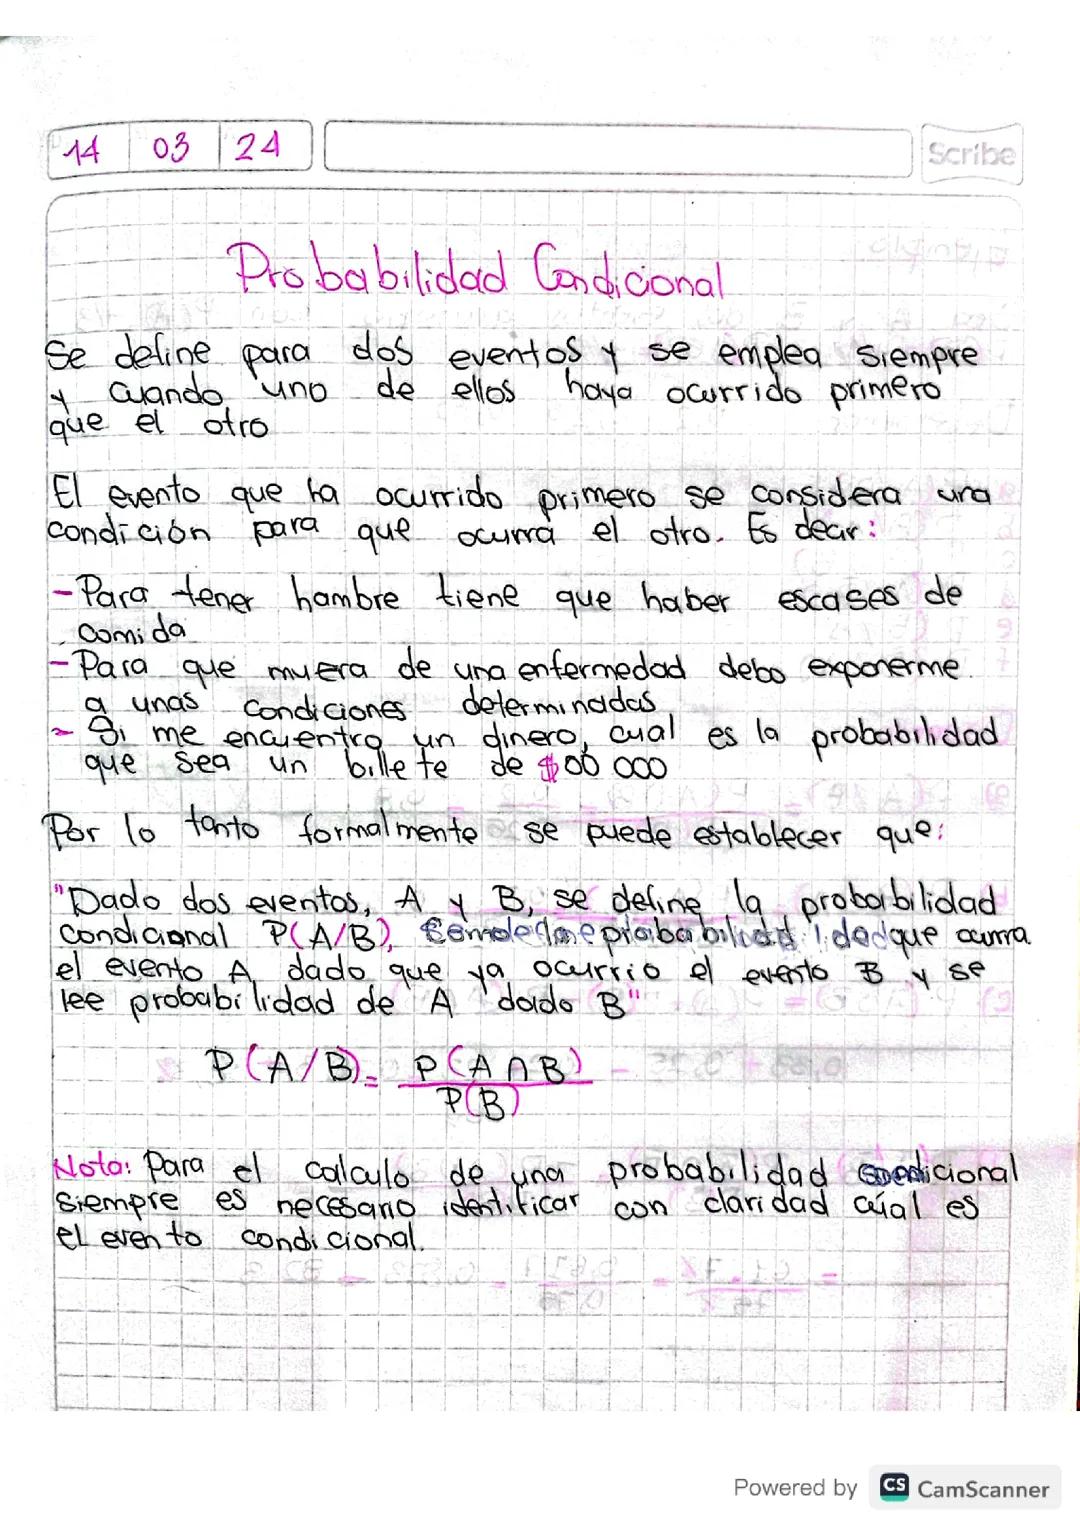 14 03 24
Scribe
Probabilidad Condicional
Se define para dos eventos y se emplea siempre
y cuando uno de ellos haya ocurrido primero
que el otro
El evento que ha ocurrido primero se considera una
condición para que ocurra el otro. Es decir:
- Para tener hambre tiene que haber escases de
comida
- Para que muera de una enfermedad debo exponerme
a unas condiciones determinadas
- Si me encuentro un dinero, cual es la probabilidad
que sea un billete de $00 000
Por lo tanto formalmente se puede establecer que:
"Dado dos eventos, A y B, se define la probabilidad
Condicional P(A/B), que ocurra
el evento A dado que ya ocurrio el evento B y se
lee probabilidad de A dado B"
P(A/B) = P(A ∩ B)
P(B)
Nota: Para el calculo de una probabilidad condicional
siempre es necesario identificar con claridad cúal es
el evento condicional.
Powered by CS CamScanner